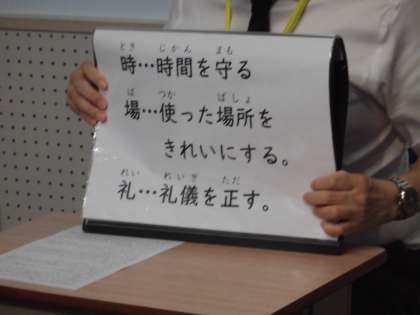 とき じかん まも
時…時間を守る
ば つか ばしょ
場…使った場所を
きれいにする。
れい れいぎ ただ
礼…礼儀を正す。